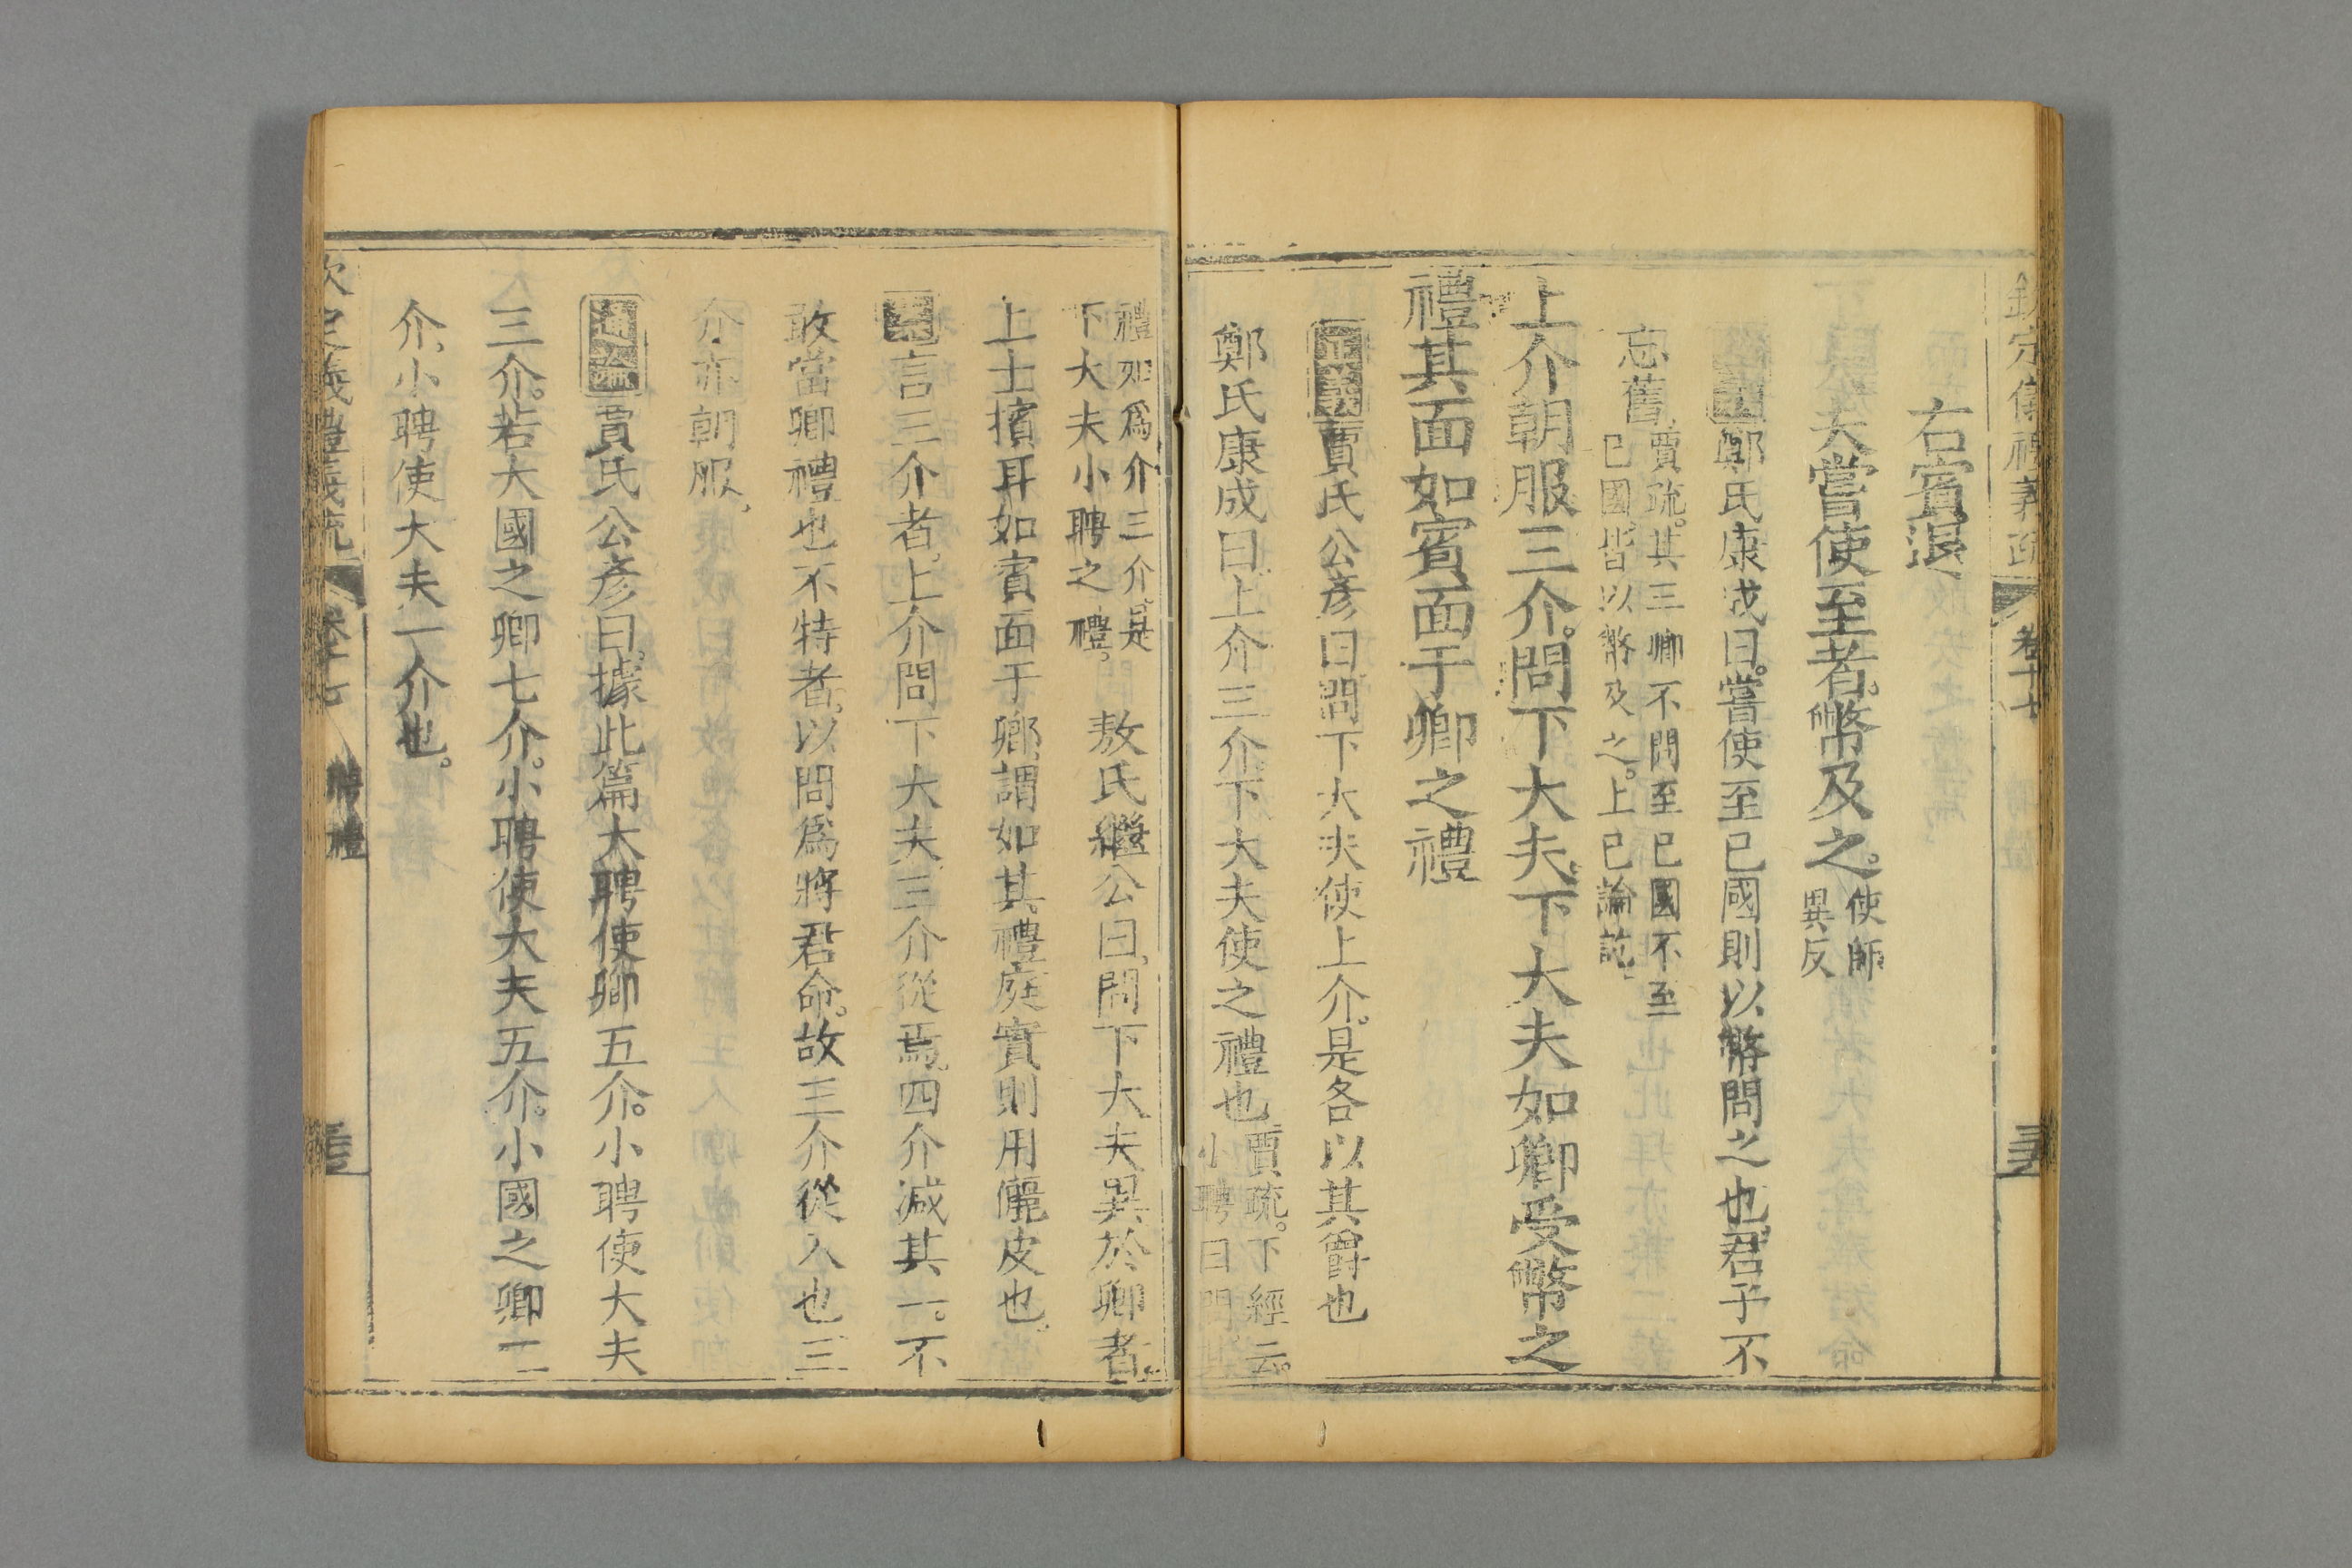 欽定儀禮義疏 卷十七
右賓退
大夫嘗使至者幣及之。使師異反
鄭氏康成曰。嘗使至已國則以幣問之也君子不
忘舊 賈疏。其三卿不問至已國不至已國皆以幣及之。上已論訖
上介朝服三介。問下大夫。下大夫如卿受幣之
禮其面如賓面于卿之禮
正義 賈氏公彥曰問下大夫使上介。是各以其爵也
鄭氏康成曰上介三介。下大夫使之禮也 賈疏。下經云。小聘曰問
禮如爲介三介。是下大夫小聘之禮。 敖氏繼公曰問下大夫異於卿者
上士擯耳如賓面于卿謂如其禮庭實則用儷皮也
言三介者。上介問下大夫三介從焉。四介減其一。不
敢當卿禮也不特者。以問爲將君命。故三介從入也三
介亦朝服
通論 賈氏公彥曰。據此篇大聘使卿五介。小聘使大夫
三介。若大國之卿七介。小聘使大夫五介。小國之卿三
介。小聘使大夫一介也。
欽定儀禮義疏 卷十七 聘禮